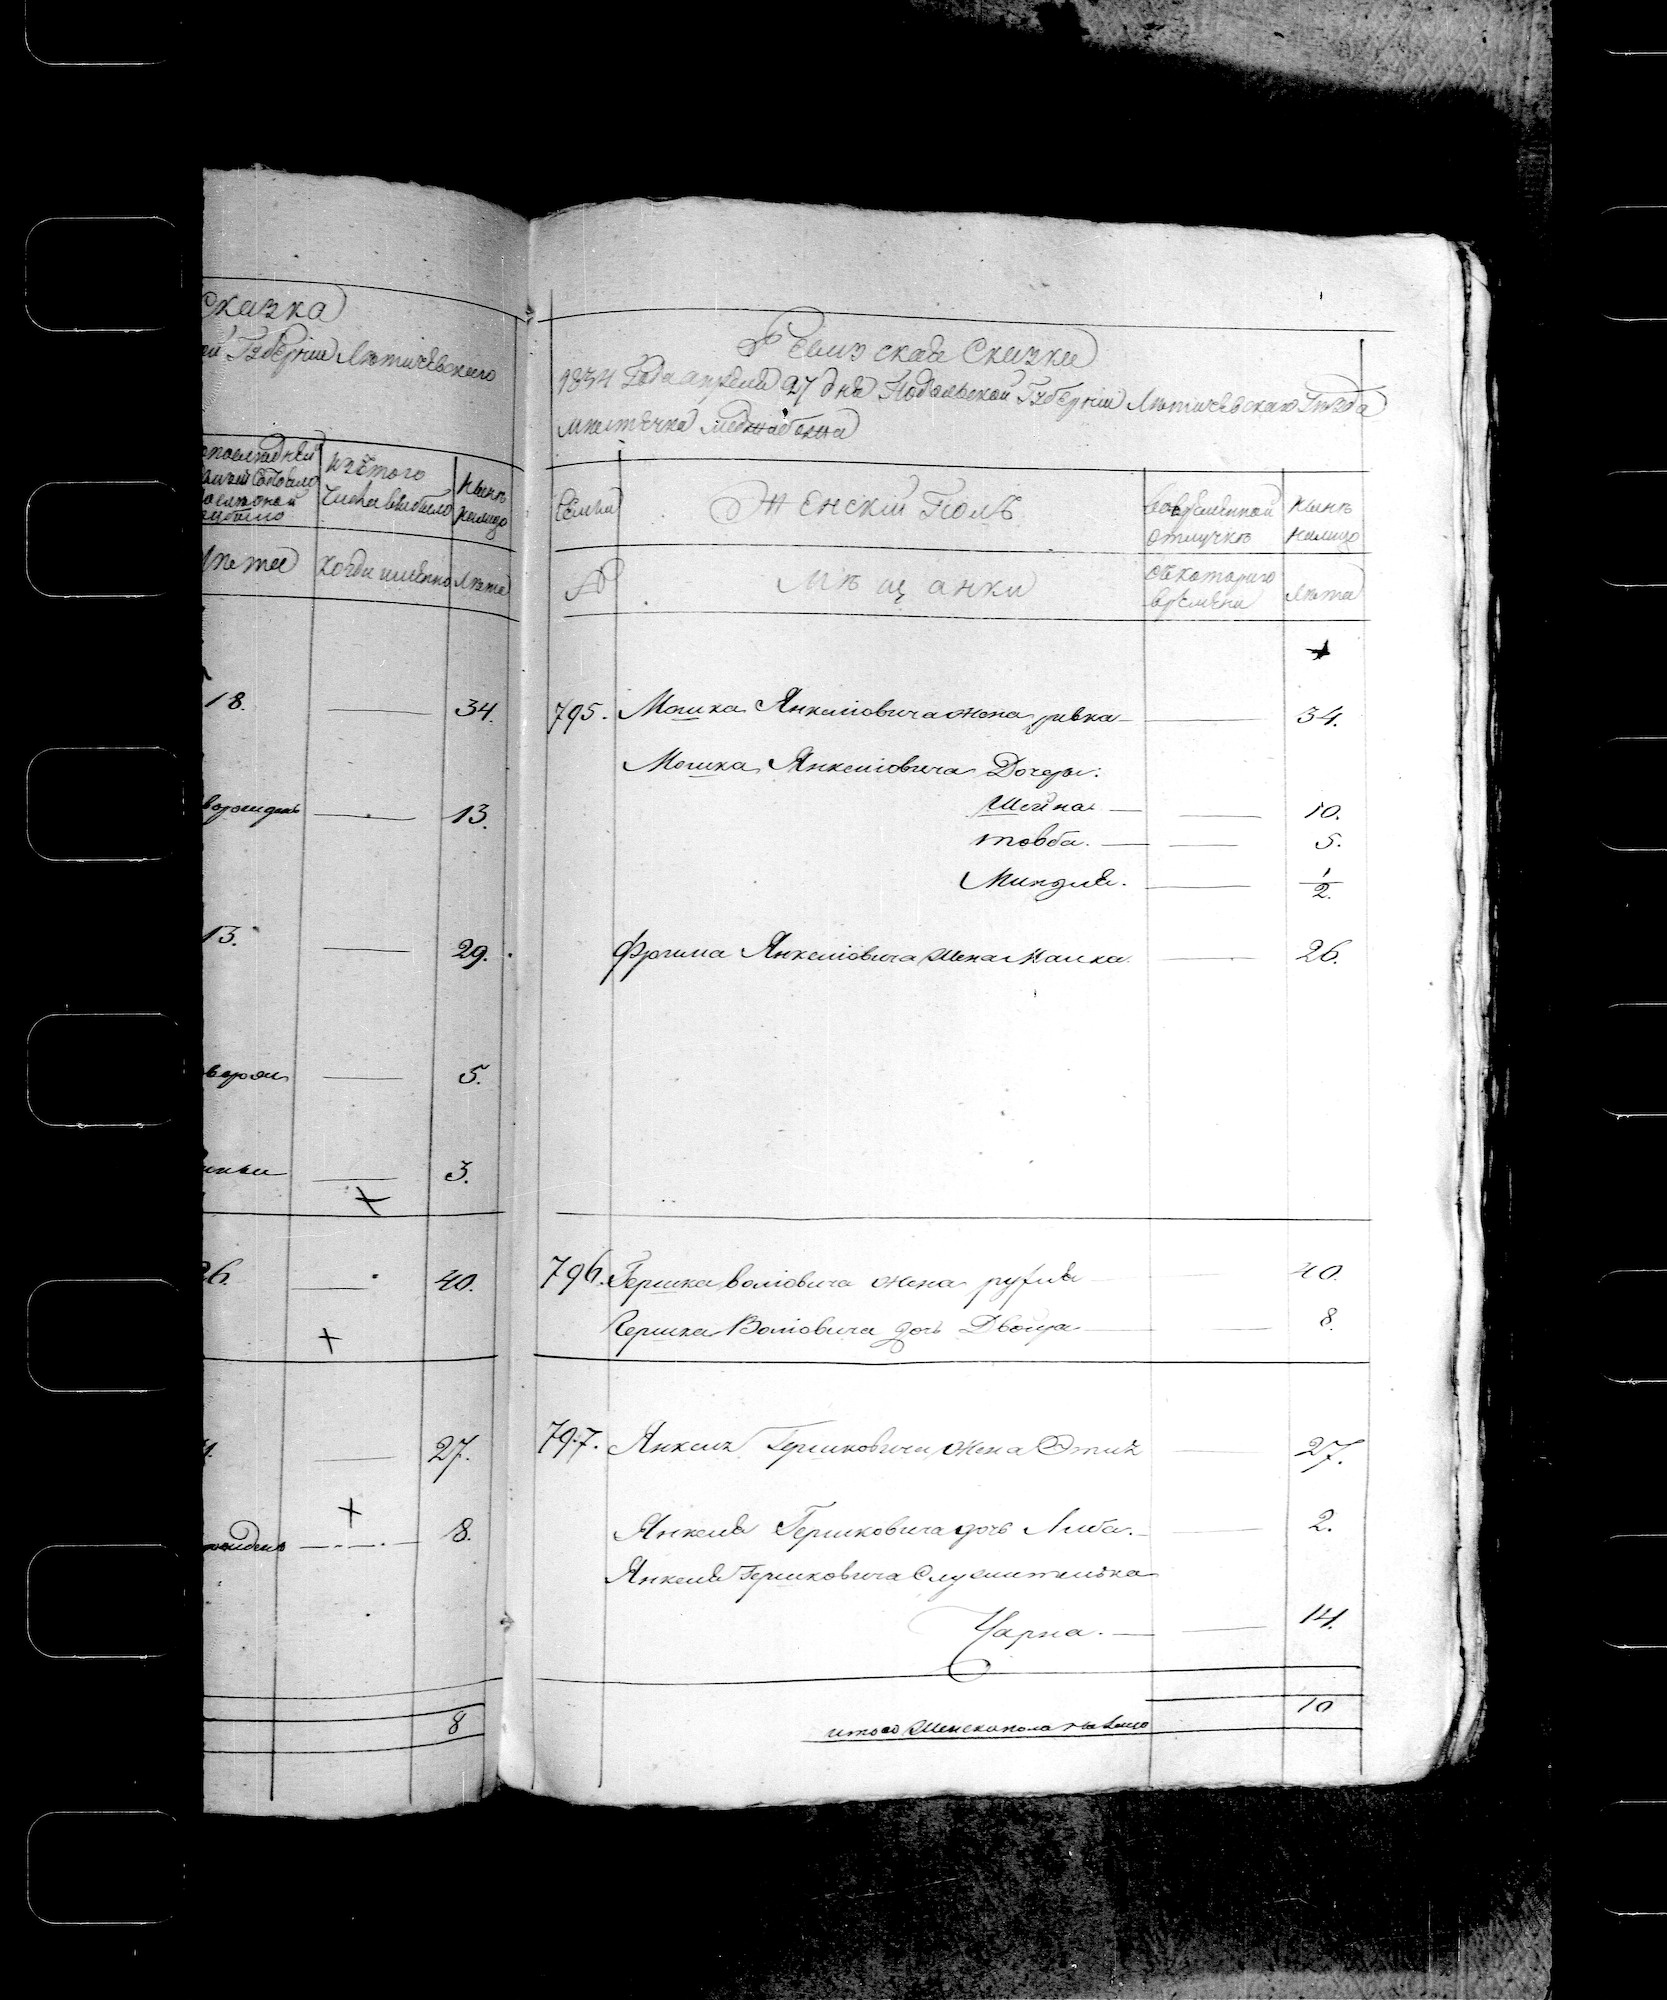 Сказка
Губерніи Лѣтичевскаго
изъ того
числа выбыло
нынѣ
налицо
Лѣта
когда именно
Лѣта
18.
34.
13.
13.
29.
5.
3.
26.
40.
27.
8.
8
Ревизская Сказка
1834 Года апреля 27 дня Подольской Губерніи Лѣтичевскаго Повѣта
мѣстечка Меджибожа
Семьи
Женскій Полъ
во временной
отлучкѣ
нынѣ
налицо
№
Мѣщанки
съ котораго
времени
Лѣта
795. Мошка Янкеліовича жена ривка — 34.
Мошка Янкеліовича Дочеры:
Шейна — 10.
товба. — 5.
Миндля. — 1/2.
Фроима Янкеліовича жена Малка. — 26.
796. Гершка Воліовича жена рухля — 40.
Гершка Воліовича дочь Двойра — 8.
797. Янкеля Гершковича жена Этля — 27.
Янкеля Гершковича дочь Либа. — 2.
Янкеля Гершковича Служителька
Чарна. — 14.
итого женска пола на лицо 10